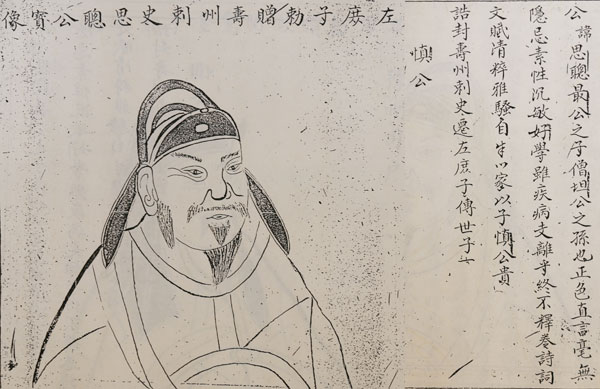 左庶子勅贈壽州刺史思聰公實像
公諱思聰最公之子僧坦公之孫也正色直言毫無
隱忌素性沉敏好學雖疾病支離手終不釋卷詩詞
文賦清粹雅騷自家以子慎公貴
誥封壽州刺史遷左庶子傳世子一
慎公